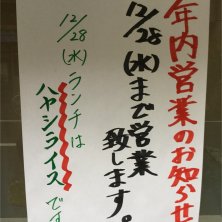 年内営業のお知らせ
12/28(水)まで営業
致します。
12/28(水)ランチは
ハヤシライスです